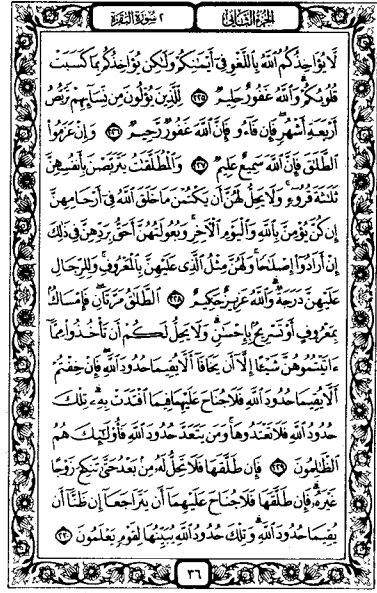 الجزء الثاني ٢ سورة البقرة
لَّا يُؤَاخِذُكُمُ ٱللَّهُ بِٱللَّغْوِ فِىٓ أَيْمَٰنِكُمْ وَلَٰكِن يُؤَاخِذُكُم بِمَا كَسَبَتْ
قُلُوبُكُمْ وَٱللَّهُ غَفُورٌ حَلِيمٌ ٢٢٥ لِّلَّذِينَ يُؤْلُونَ مِن نِّسَآئِهِمْ تَرَبُّصُ
أَرْبَعَةِ أَشْهُرٍ فَإِن فَآءُو فَإِنَّ ٱللَّهَ غَفُورٌ رَّحِيمٌ ٢٢٦ وَإِنْ عَزَمُوا۟
ٱلطَّلَٰقَ فَإِنَّ ٱللَّهَ سَمِيعٌ عَلِيمٌ ٢٢٧ وَٱلْمُطَلَّقَٰتُ يَتَرَبَّصْنَ بِأَنفُسِهِنَّ
ثَلَٰثَةَ قُرُوٓءٍ وَلَا يَحِلُّ لَهُنَّ أَن يَكْتُمْنَ مَا خَلَقَ ٱللَّهُ فِىٓ أَرْحَامِهِنَّ
إِن كُنَّ يُؤْمِنَّ بِٱللَّهِ وَٱلْيَوْمِ ٱلْءَاخِرِ وَبُعُولَتُهُنَّ أَحَقُّ بِرَدِّهِنَّ فِى ذَٰلِكَ
إِنْ أَرَادُوٓا۟ إِصْلَٰحًا وَلَهُنَّ مِثْلُ ٱلَّذِى عَلَيْهِنَّ بِٱلْمَعْرُوفِ وَلِلرِّجَالِ
عَلَيْهِنَّ دَرَجَةٌ وَٱللَّهُ عَزِيزٌ حَكِيمٌ ٢٢٨ ٱلطَّلَٰقُ مَرَّتَانِ فَإِمْسَاكٌۢ
بِمَعْرُوفٍ أَوْ تَسْرِيحٌۢ بِإِحْسَٰنٍ وَلَا يَحِلُّ لَكُمْ أَن تَأْخُذُوا۟ مِمَّآ
ءَاتَيْتُمُوهُنَّ شَيْـًٔا إِلَّآ أَن يَخَافَآ أَلَّا يُقِيمَا حُدُودَ ٱللَّهِ فَإِنْ خِفْتُمْ
أَلَّا يُقِيمَا حُدُودَ ٱللَّهِ فَلَا جُنَاحَ عَلَيْهِمَا فِيمَا ٱفْتَدَتْ بِهِۦ تِلْكَ
حُدُودُ ٱللَّهِ فَلَا تَعْتَدُوهَا وَمَن يَتَعَدَّ حُدُودَ ٱللَّهِ فَأُو۟لَٰٓئِكَ هُمُ
ٱلظَّٰلِمُونَ ٢٢٩ فَإِن طَلَّقَهَا فَلَا تَحِلُّ لَهُۥ مِنۢ بَعْدُ حَتَّىٰ تَنكِحَ زَوْجًا
غَيْرَهُۥ فَإِن طَلَّقَهَا فَلَا جُنَاحَ عَلَيْهِمَآ أَن يَتَرَاجَعَآ إِن ظَنَّآ أَن
يُقِيمَا حُدُودَ ٱللَّهِ وَتِلْكَ حُدُودُ ٱللَّهِ يُبَيِّنُهَا لِقَوْمٍ يَعْلَمُونَ ٢٣٠
٣٦